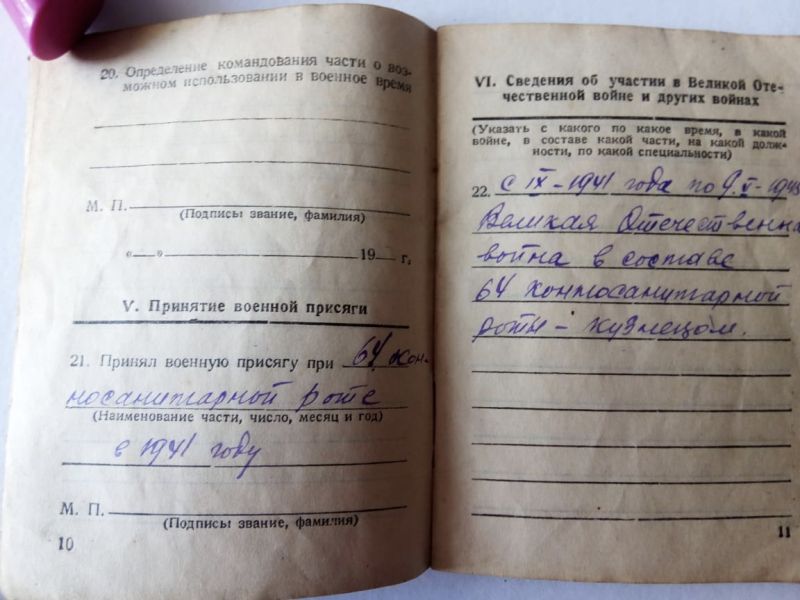 20. Определение командования части о воз-
можном использовании в военное время
М. П.
(Подписы звание, фамилия)
„ “ 19 г.
V. Принятие военной присяги
21. Принял военную присягу при 64 кон-
носанитарной роте
(Наименование части, число, месяц и год)
в 1941 году
М. П.
(Подписы звание, фамилия)
10
VI. Сведения об участии в Великой Оте-
чественной войне и других войнах
(Указать с какого по какое время, в какой
войне, в составе какой части, на какой долж-
ности, по какой специальности)
22. С IX-1941 года по 9.V-1945
Великая Отечественна
война в составе
64 конносанитарной
роты - кузнецом.
11